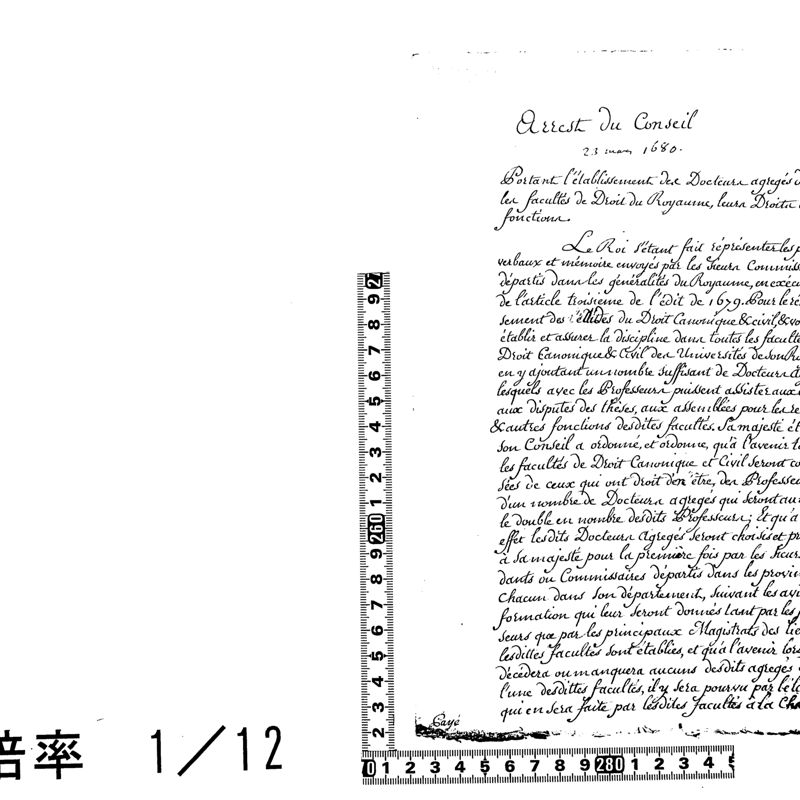 Arrest du Conseil
23 mars 1680.
Portant l'établissement des Docteurs agregés d
les facultés de Droit du Royaume, leurs Droits
fonctions.
Le Roi s'étant fait réprésenter les p
verbaux et mémoire envoyés par les Sieurs Commiss
départis dans les généralités du Royaume, en exécu
de l'article troisieme de l'édit de 1679. Pour le ré
sement des Droit Canonique & civil, & vo
établir et assurer la discipline dans toutes les faculté
Droit Canonique & Civil des Universités de son R
en y ajoutant un nombre suffisant de Docteurs
lesquels avec les Professeurs puissent assister aux
aux disputes des thèses, aux assemblées pour les re
& autres fonctions desdites facultés. Sa majesté ét
son Conseil a ordonné, et ordonne, qu'à l'avenir t
les facultés de Droit Canonique et Civil seront co
sées de ceux qui ont droit d'en être, des Professeu
d'un nombre de Docteurs agregés qui seront au
le double en nombre desdits Professeurs; Et qu'à
effet lesdits Docteurs Agregés seront choisis et pr
à Sa majesté pour la première fois par les Sieurs
dants ou Commissaires départis dans les provin
Chacun dans son département, suivant les avi
formation qui leur seront donnés tant par les p
seurs que par les principaux Magistrats des lie
lesdittes facultés sont établies, et qu'à l'avenir lors
décédera ou manquera aucuns desdits agregés
l'une desdittes facultés, il y sera pourvu par l'él
qui en sera faite par lesdites facultés à la Cha
Cayé
倍率 1/12
27
9
8
7
6
5
4
3
2
1
260
9
8
7
6
5
4
3
2
70 1 2 3 4 5 6 7 8 9 280 1 2 3 4 5